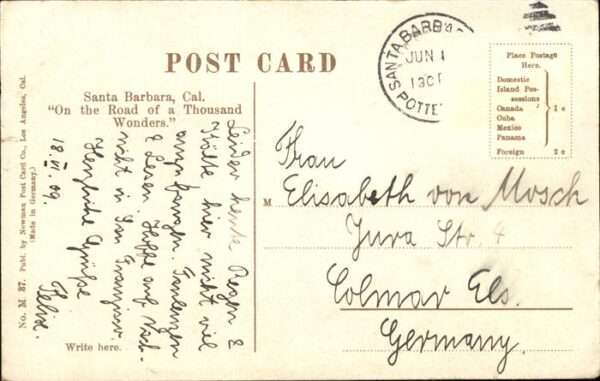 POST CARD
Santa Barbara, Cal.
"On the Road of a Thousand
Wonders."
SANTA BARBA
JUN 1
130
POTTE
Place Postage
Here.
Domestic
Island Pos-
sessions
Canada
Cuba
Mexico
Panama
1 c
Foreign 2 c
No. M 37. Publ. by Newman Post Card Co., Los Angeles, Cal.
(Made in Germany.)
18. VI. 09.
Leider heute Regen &
Kälte hier nicht viel
anzufangen.
& Hoffe auf
nicht in San
Herzliche Grüsse
Felix.
Write here.
M
Frau
Elisabeth von Mosch
Jura Str. 4
Colmar Els.
Germany.